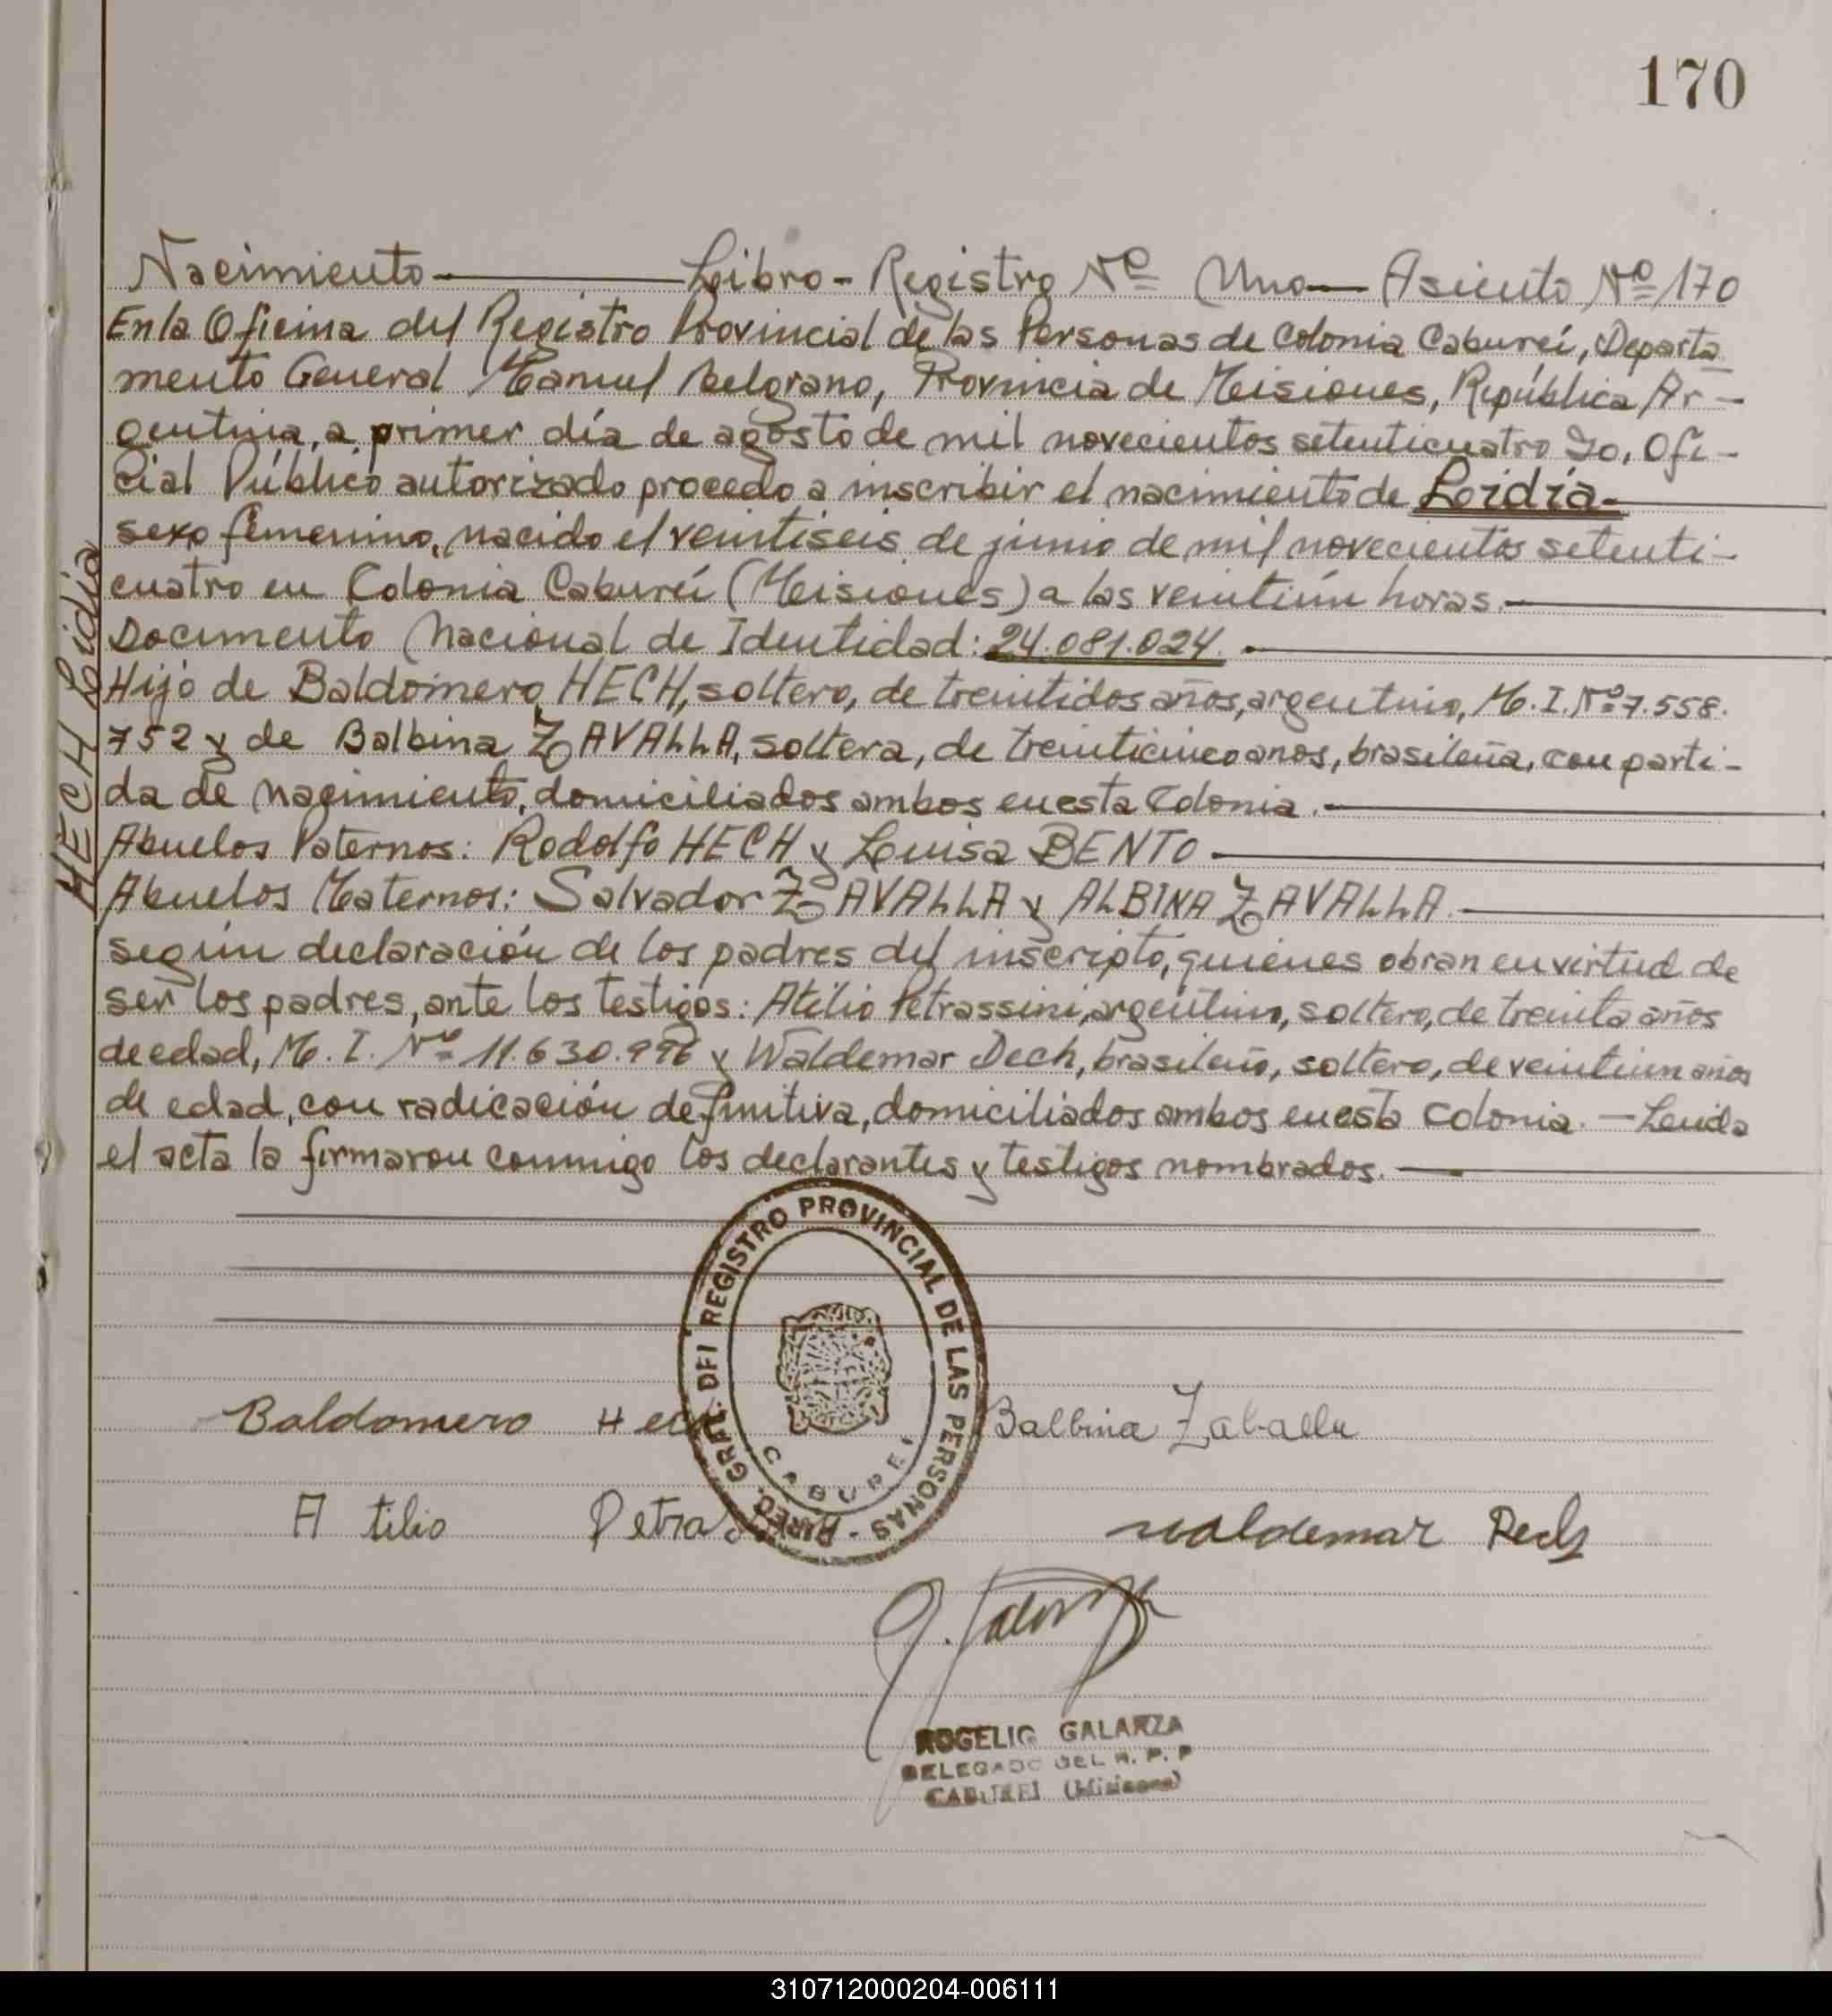 170
Nacimiento — Libro - Registro Nº Uno — Asiento Nº 170
En la Oficina del Registro Provincial de las Personas de Colonia Cabureí, Departa
mento General Manuel Belgrano, Provincia de Misiones, República Ar-
gentina, a primer día de agosto de mil novecientos setenticuatro Yo, Ofi-
cial Público autorizado procedo a inscribir el nacimiento de Lidia-
sexo femenino, nacido el veintiseis de junio de mil novecientos setenti-
cuatro en Colonia Cabureí (Misiones) a las veintiún horas.—
Documento Nacional de Identidad: 24.081.024.—
Hijo de Baldomero HECH, soltero, de treintidos años, argentino, M.I.Nº 7.558.
752 y de Balbina ZAVALLA, soltera, de treinticinco anos, brasileña, con parti-
da de nacimiento, domiciliados ambos en esta Colonia.—
Abuelos Paternos: Rodolfo HECH y Luisa BENTO—
Abuelos Maternos: Salvador ZAVALLA y ALBINA ZAVALLA.—
según declaración de los padres del inscripto, quiénes obran en virtud de
ser los padres, ante los testigos: Atilio Petrassini, argentino, soltero, de treinta años
de edad, M.I. Nº 11.630.996 y Waldemar Dech, brasileño, soltero, de veintiun años
de edad, con radicación definitiva, domiciliados ambos en esta Colonia. — Leida
el acta la firmaron conmigo los declarantes y testigos nombrados.—
HECH Lidia
Baldomero Hech
Balbina Zaballa
DIREC. GRAL. DEL REGISTRO PROVINCIAL DE LAS PERSONAS -
CABUREI
Atilio Petra
Waldemar Dech
ROGELIO GALARZA
DELEGADO DEL R. P. P
CABUREI (Misiones)
310712000204-006111